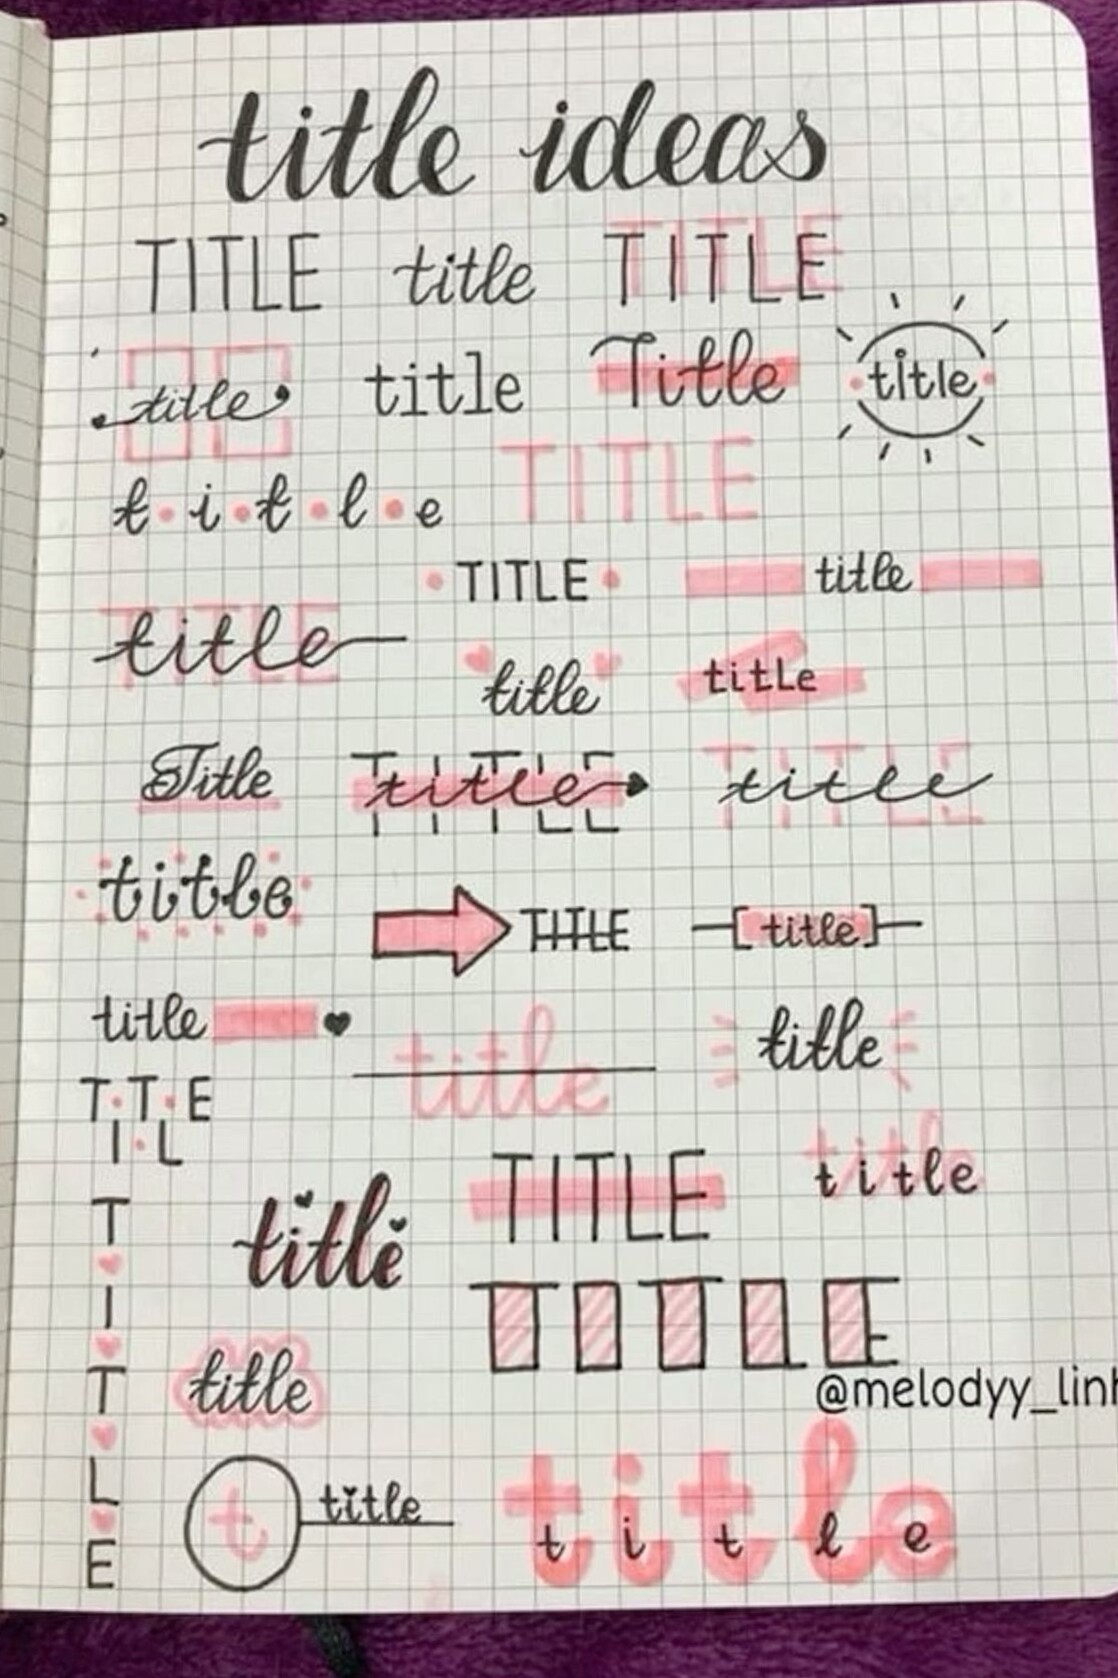 title ideas
TITLE title TITLE
title title Title title
t i t l e TITLE
TITLE title
title
title title
Title title title
title TITLE title
title title title
TITLE
TITLE title
title
TITLE
TITLE
title
@melodyy_linh
t title title